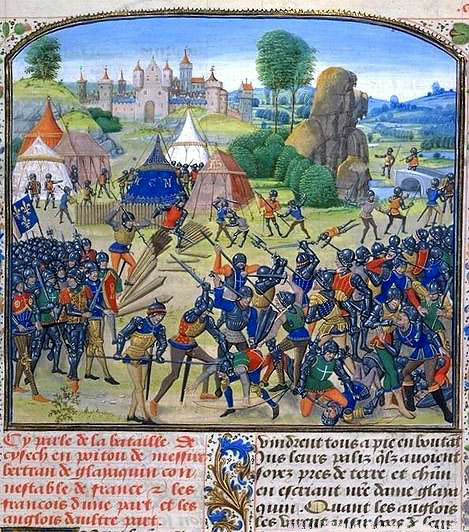 Cy parle de la bataille De
cysech en poitou de messire
bertran de glayquin con
nestable de france & les
francois dune part et les
anglois daultre part.
Vindrent tous a pie en boutat
Jus leurs paliz qlz auoient
assez pres de terre et chūn
en escriant nre dame glaia
quin. Quant les anglois